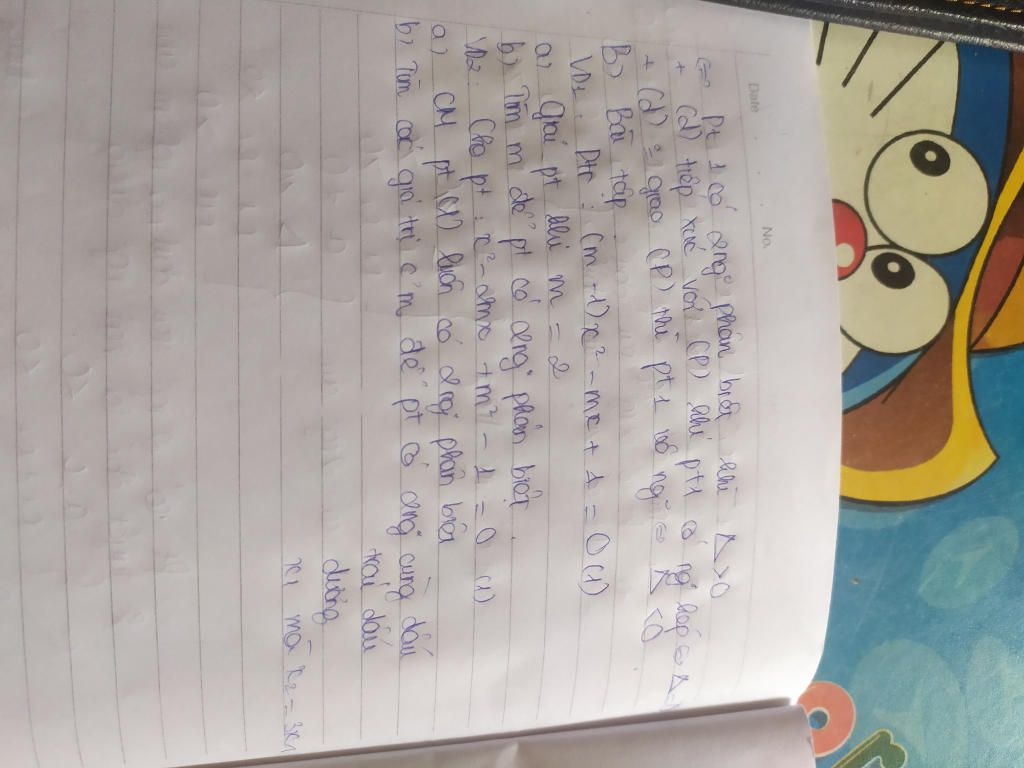 Date No.
<=> Pt 1 có 2 ngo phân biệt khi Δ>0
+ (d) tiếp xúc với (P) khi pt1 có ng kép <=> Δ
+ (d) ko giao (P) thì pt1 vô ngo <=> Δ<0
B) Bài tập
VD1: Pt: (m-1)x² - mx + 1 = 0 (1)
a) Giải pt khi m = 2
b) Tìm m để pt có 2ngo phân biệt.
VD2: Cho pt: x² - 2mx + m² - 1 = 0 (1)
a) CM pt (1) luôn có 2ngo phân biệt
b) Tìm các giá trị c m để pt có 2ngo cùng dấu
trái dấu
dương
x₁ mà x₂ = 3x₁